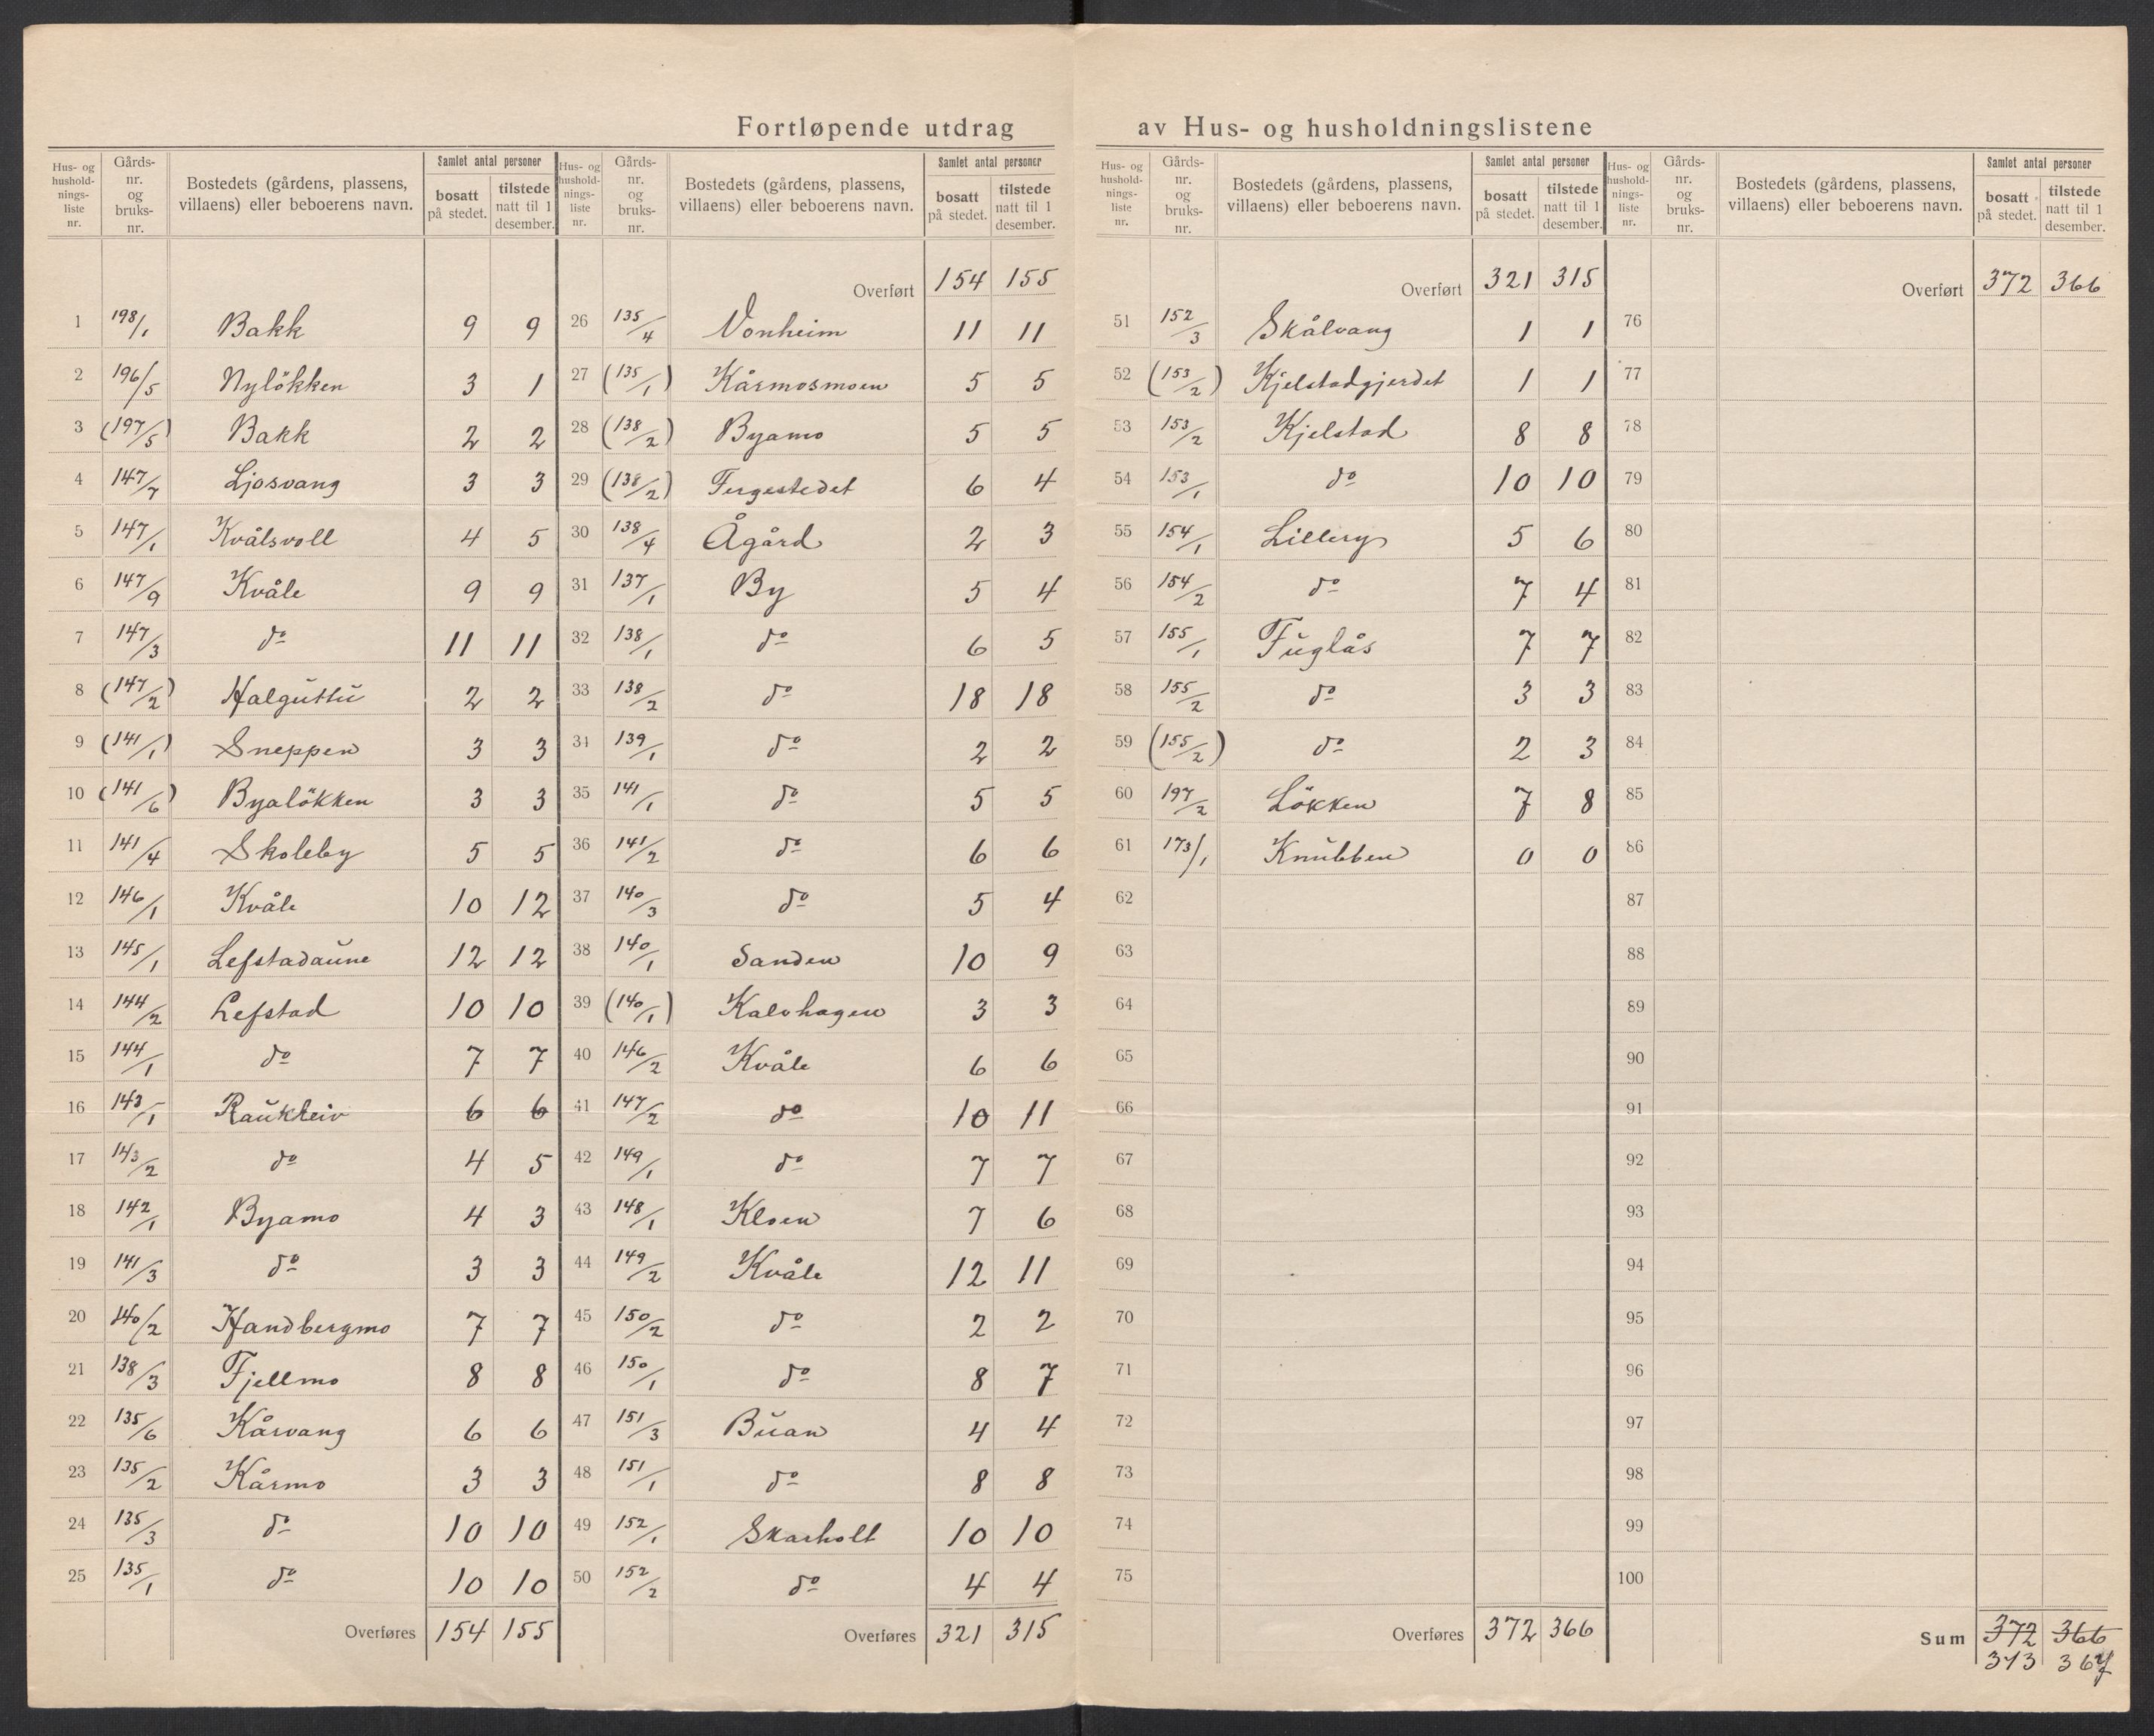 Fortløpende utdrag av Hus- og husholdningslistene
Hus- og hushold-nings-liste nr. | Gårds-nr. og bruks-nr. | Bostedets (gårdens, plassens, villaens) eller beboerens navn. | Samlet antal personer bosatt på stedet. | tilstede natt til 1 desember.
1 198/1 Bakk 9 9
2 196/5 Nyløkken 3 1
3 (197/5) Bakk 2 2
4 147/7 Ljosvang 3 3
5 147/1 Kvålsvoll 4 5
6 147/9 Kvåle 9 9
7 147/3 do 11 11
8 (147/2) Halguttu 2 2
9 (141/1) Sneppen 3 3
10 (141/6) Byaløkken 3 3
11 141/4 Skoleby 5 5
12 146/1 Kvåle 10 12
13 145/1 Lefstadaune 12 12
14 144/2 Lefstad 10 10
15 144/1 do 7 7
16 143/1 Raukleiv 6 6
17 143/2 do 4 5
18 142/1 Byamo 4 3
19 141/3 do 3 3
20 140/2 Handbergmo 7 7
21 138/3 Fjellmo 8 8
22 135/6 Kårvang 6 6
23 135/2 Kårmo 3 3
24 135/3 do 10 10
25 135/1 do 10 10
Overføres 154 155
Hus- og hushold-nings-liste nr. | Gårds-nr. og bruks-nr. | Bostedets (gårdens, plassens, villaens) eller beboerens navn. | Samlet antal personer bosatt på stedet. | tilstede natt til 1 desember.
Overført 154 155
26 135/4 Vonheim 11 11
27 (135/1) Kårmosmoen 5 5
28 (138/2) Byamo 5 5
29 (138/2) Fergestedet 6 4
30 138/4 Ågård 2 3
31 137/1 By 5 4
32 138/1 do 6 5
33 138/2 do 18 18
34 139/1 do 2 2
35 141/1 do 5 5
36 141/2 do 6 6
37 140/3 do 5 4
38 140/1 Sanden 10 9
39 (140/1) Kalvhagen 3 3
40 146/2 Kvåle 6 6
41 147/2 do 10 11
42 149/1 do 7 7
43 148/1 Kloen 7 6
44 149/2 Kvåle 12 11
45 150/2 do 2 2
46 150/1 do 8 7
47 151/3 Buan 4 4
48 151/1 do 8 8
49 152/1 Skarholt 10 10
50 152/2 do 4 4
Overføres 321 315
Hus- og hushold-nings-liste nr. | Gårds-nr. og bruks-nr. | Bostedets (gårdens, plassens, villaens) eller beboerens navn. | Samlet antal personer bosatt på stedet. | tilstede natt til 1 desember.
Overført 321 315
51 152/3 Skålvang 1 1
52 (153/2) Kjelstadgjerdet 1 1
53 153/2 Kjelstad 8 8
54 153/1 do 10 10
55 154/1 Lillery 5 6
56 154/2 do 7 4
57 155/1 Fuglås 7 7
58 155/2 do 3 3
59 (155/2) do 2 3
60 197/2 Løkken 7 8
61 173/1 Knubben 0 0
62
63
64
65
66
67
68
69
70
71
72
73
74
75
Overføres 372 366
Hus- og hushold-nings-liste nr. | Gårds-nr. og bruks-nr. | Bostedets (gårdens, plassens, villaens) eller beboerens navn. | Samlet antal personer bosatt på stedet. | tilstede natt til 1 desember.
Overført 372 366
76
77
78
79
80
81
82
83
84
85
86
87
88
89
90
91
92
93
94
95
96
97
98
99
100
Sum 372 366
373 367